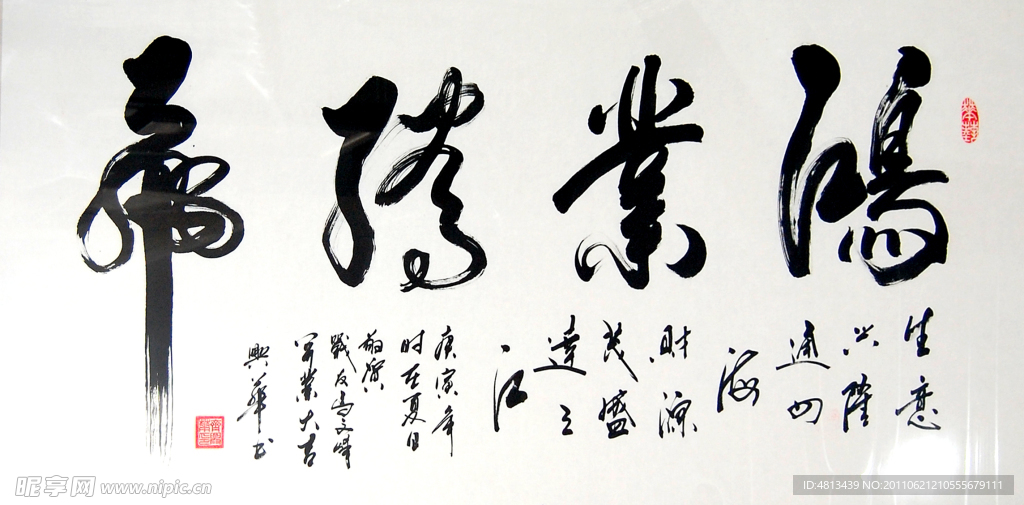 鴻業騰飛
生意
兴隆
通四
海
財源
茂盛
達三
江
庚寅年
时在夏日
敬賀
戰友高文峰
開業大吉
興華书
昵享网 www.nipic.cn
ID:4813439 NO:20110621210555679111